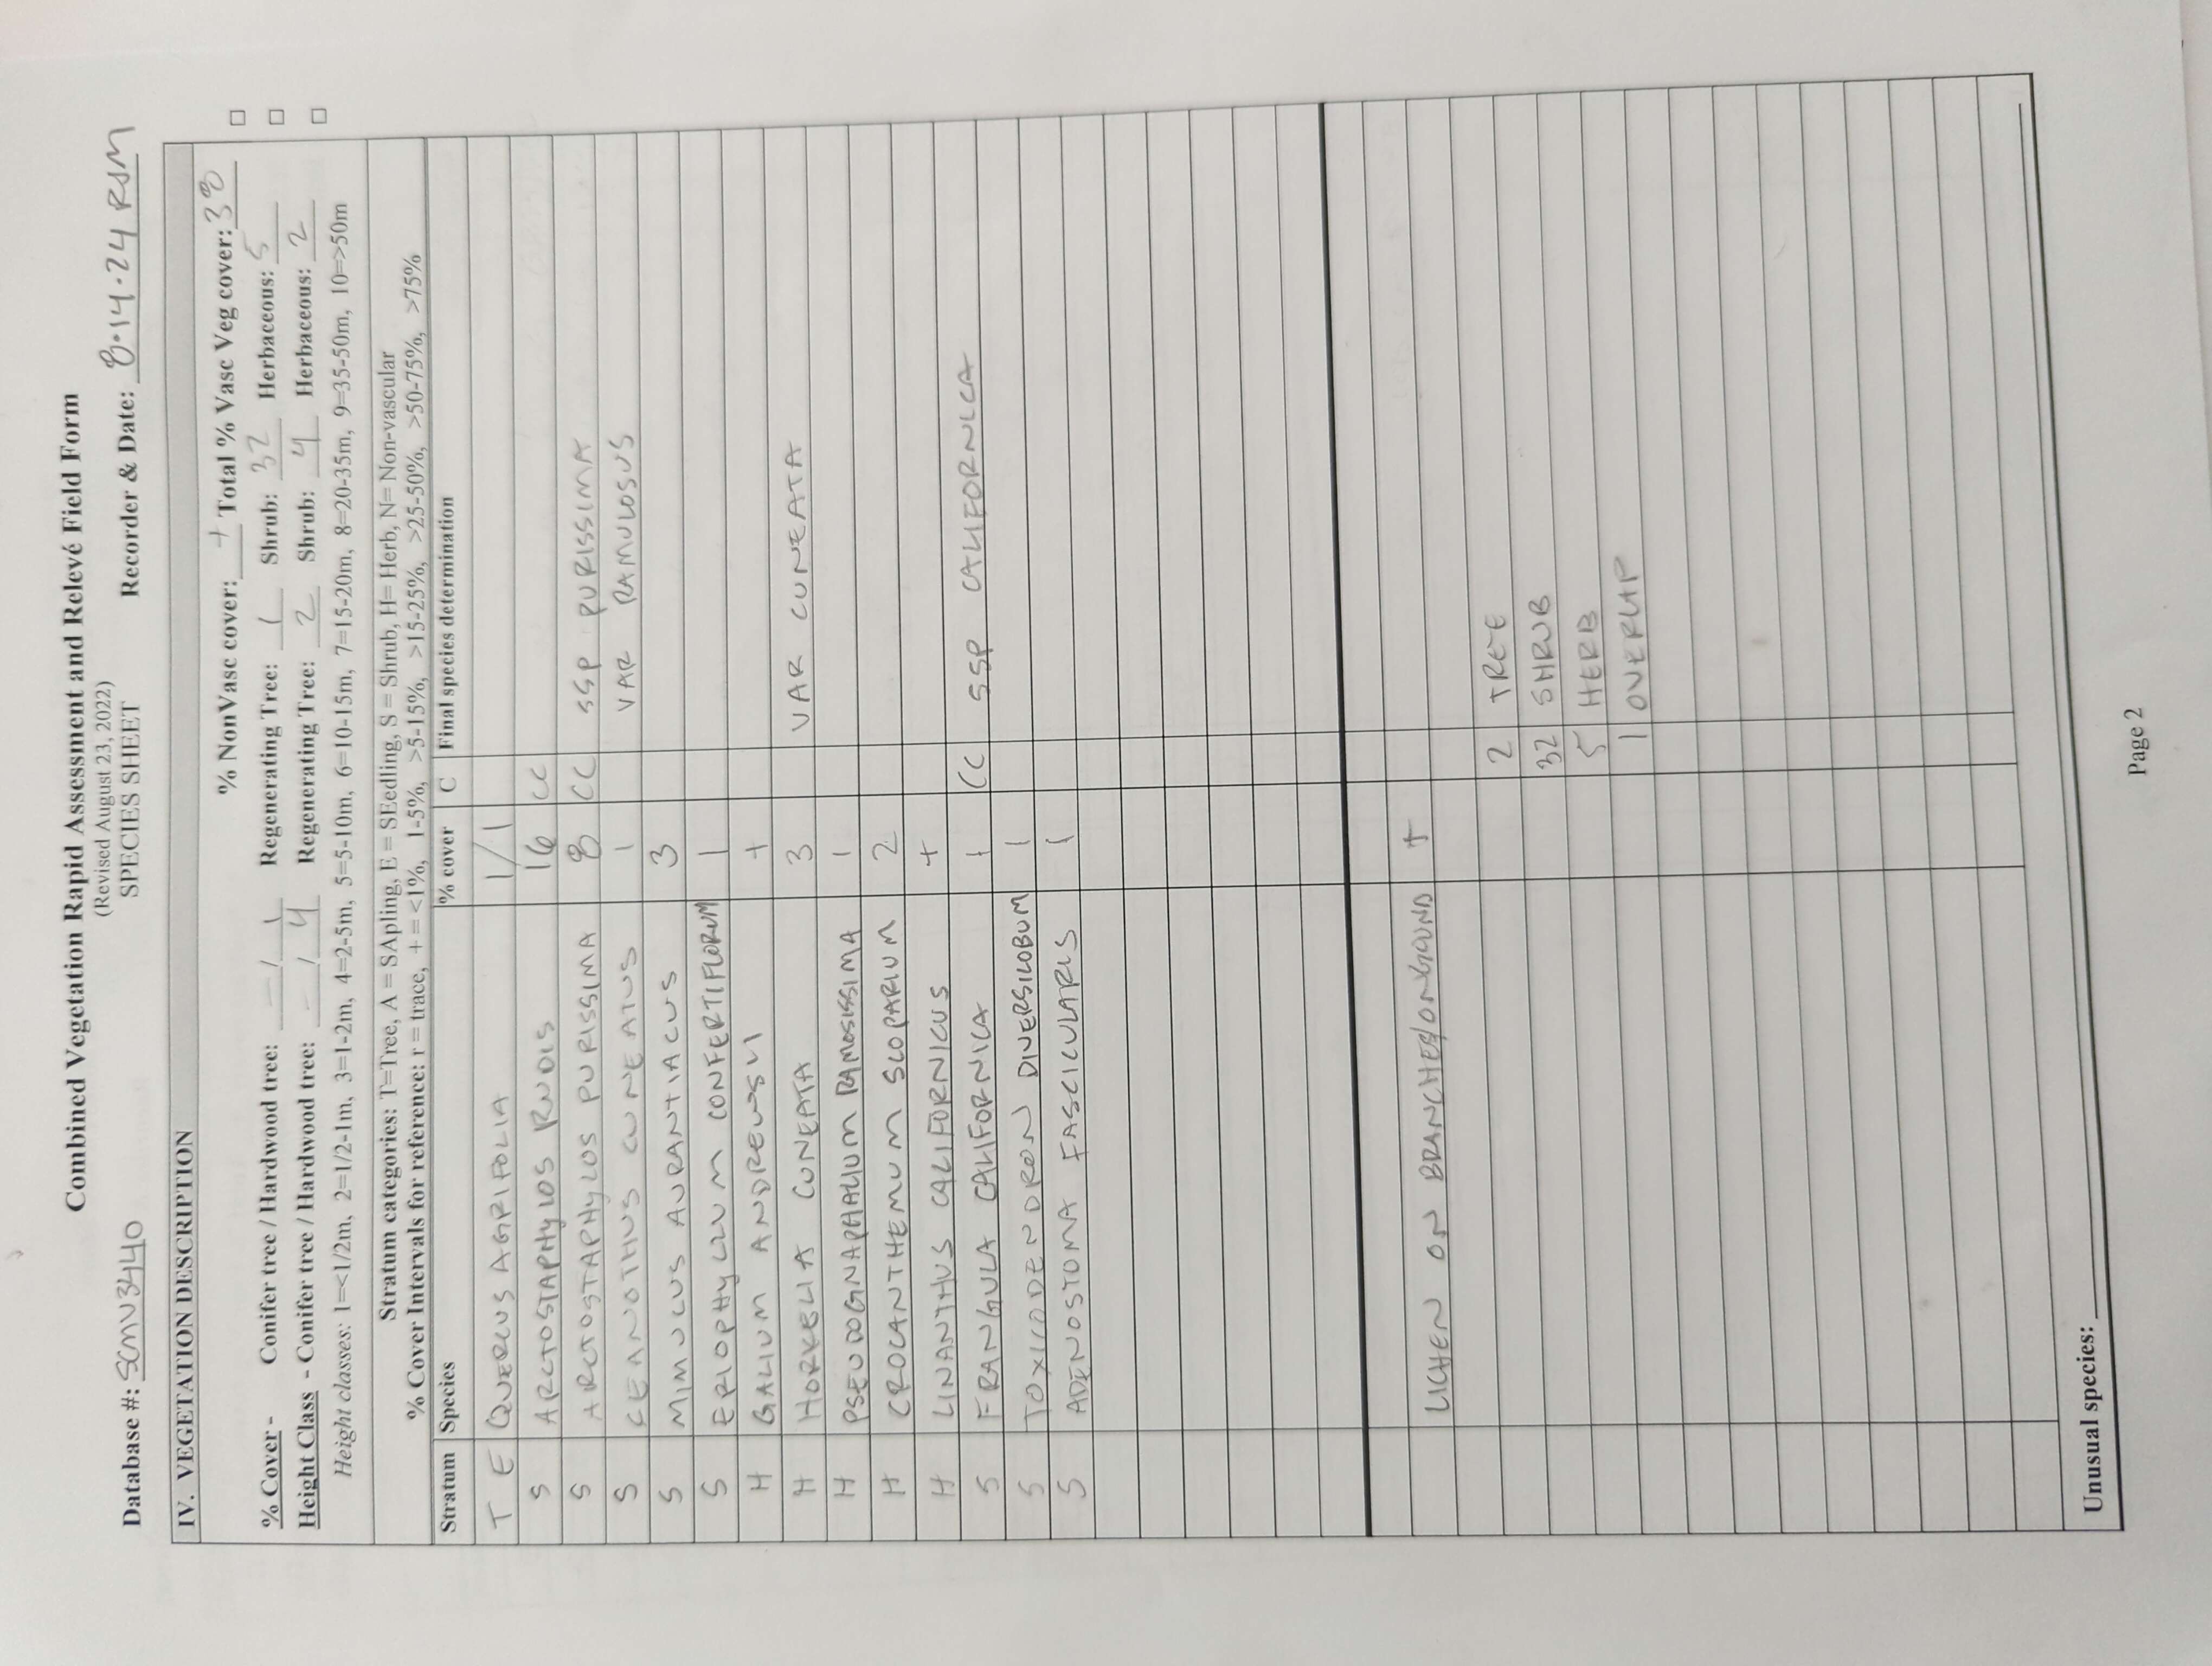 Combined Vegetation Rapid Assessment and Relevé Field Form
(Revised August 23, 2022)
Database #: SCMV3440 SPECIES SHEET Recorder & Date: 8·14·24 RSM
IV. VEGETATION DESCRIPTION
% NonVasc cover: + Total % Vasc Veg cover: 38
% Cover - Conifer tree / Hardwood tree: — / 1 Regenerating Tree: 1 Shrub: 32 Herbaceous: 5
Height Class - Conifer tree / Hardwood tree: — / 4 Regenerating Tree: 2 Shrub: 4 Herbaceous: 2
Height classes: 1=<1/2m, 2=1/2-1m, 3=1-2m, 4=2-5m, 5=5-10m, 6=10-15m, 7=15-20m, 8=20-35m, 9=35-50m, 10=>50m
Stratum categories: T=Tree, A = SApling, E = SEedling, S = Shrub, H= Herb, N= Non-vascular
% Cover Intervals for reference: r = trace, + = <1%, 1-5%, >5-15%, >15-25%, >25-50%, >50-75%, >75%
Stratum Species % cover C Final species determination
T E QUERCUS AGRIFOLIA 1/1
S ARCTOSTAPHYLOS RUDIS 16 CC
S ARCTOSTAPHYLOS PURISSIMA 8 CC SSP PURISSIMA
S CEANOTHUS CUNEATUS 1 VAR RAMULOSUS
S MIMULUS AURANTIACUS 3
S ERIOPHYLLUM CONFERTIFLORUM 1
H GALIUM ANDREWSII +
H HORKELIA CUNEATA 3 VAR CUNEATA
H PSEUDOGNAPHALIUM RAMOSISSIMA 1
H CROCANTHEMUM SCOPARIUM 2
H LINANTHUS CALIFORNICUS +
S FRANGULA CALIFORNICA 1 CC SSP CALIFORNICA
S TOXICODENDRON DIVERSILOBUM 1
S ADENOSTOMA FASCICULARIS 1
LICHEN ON BRANCHES/ON GROUND +
2 TREE
32 SHRUB
5 HERB
1 OVERLAP
Unusual species:
Page 2